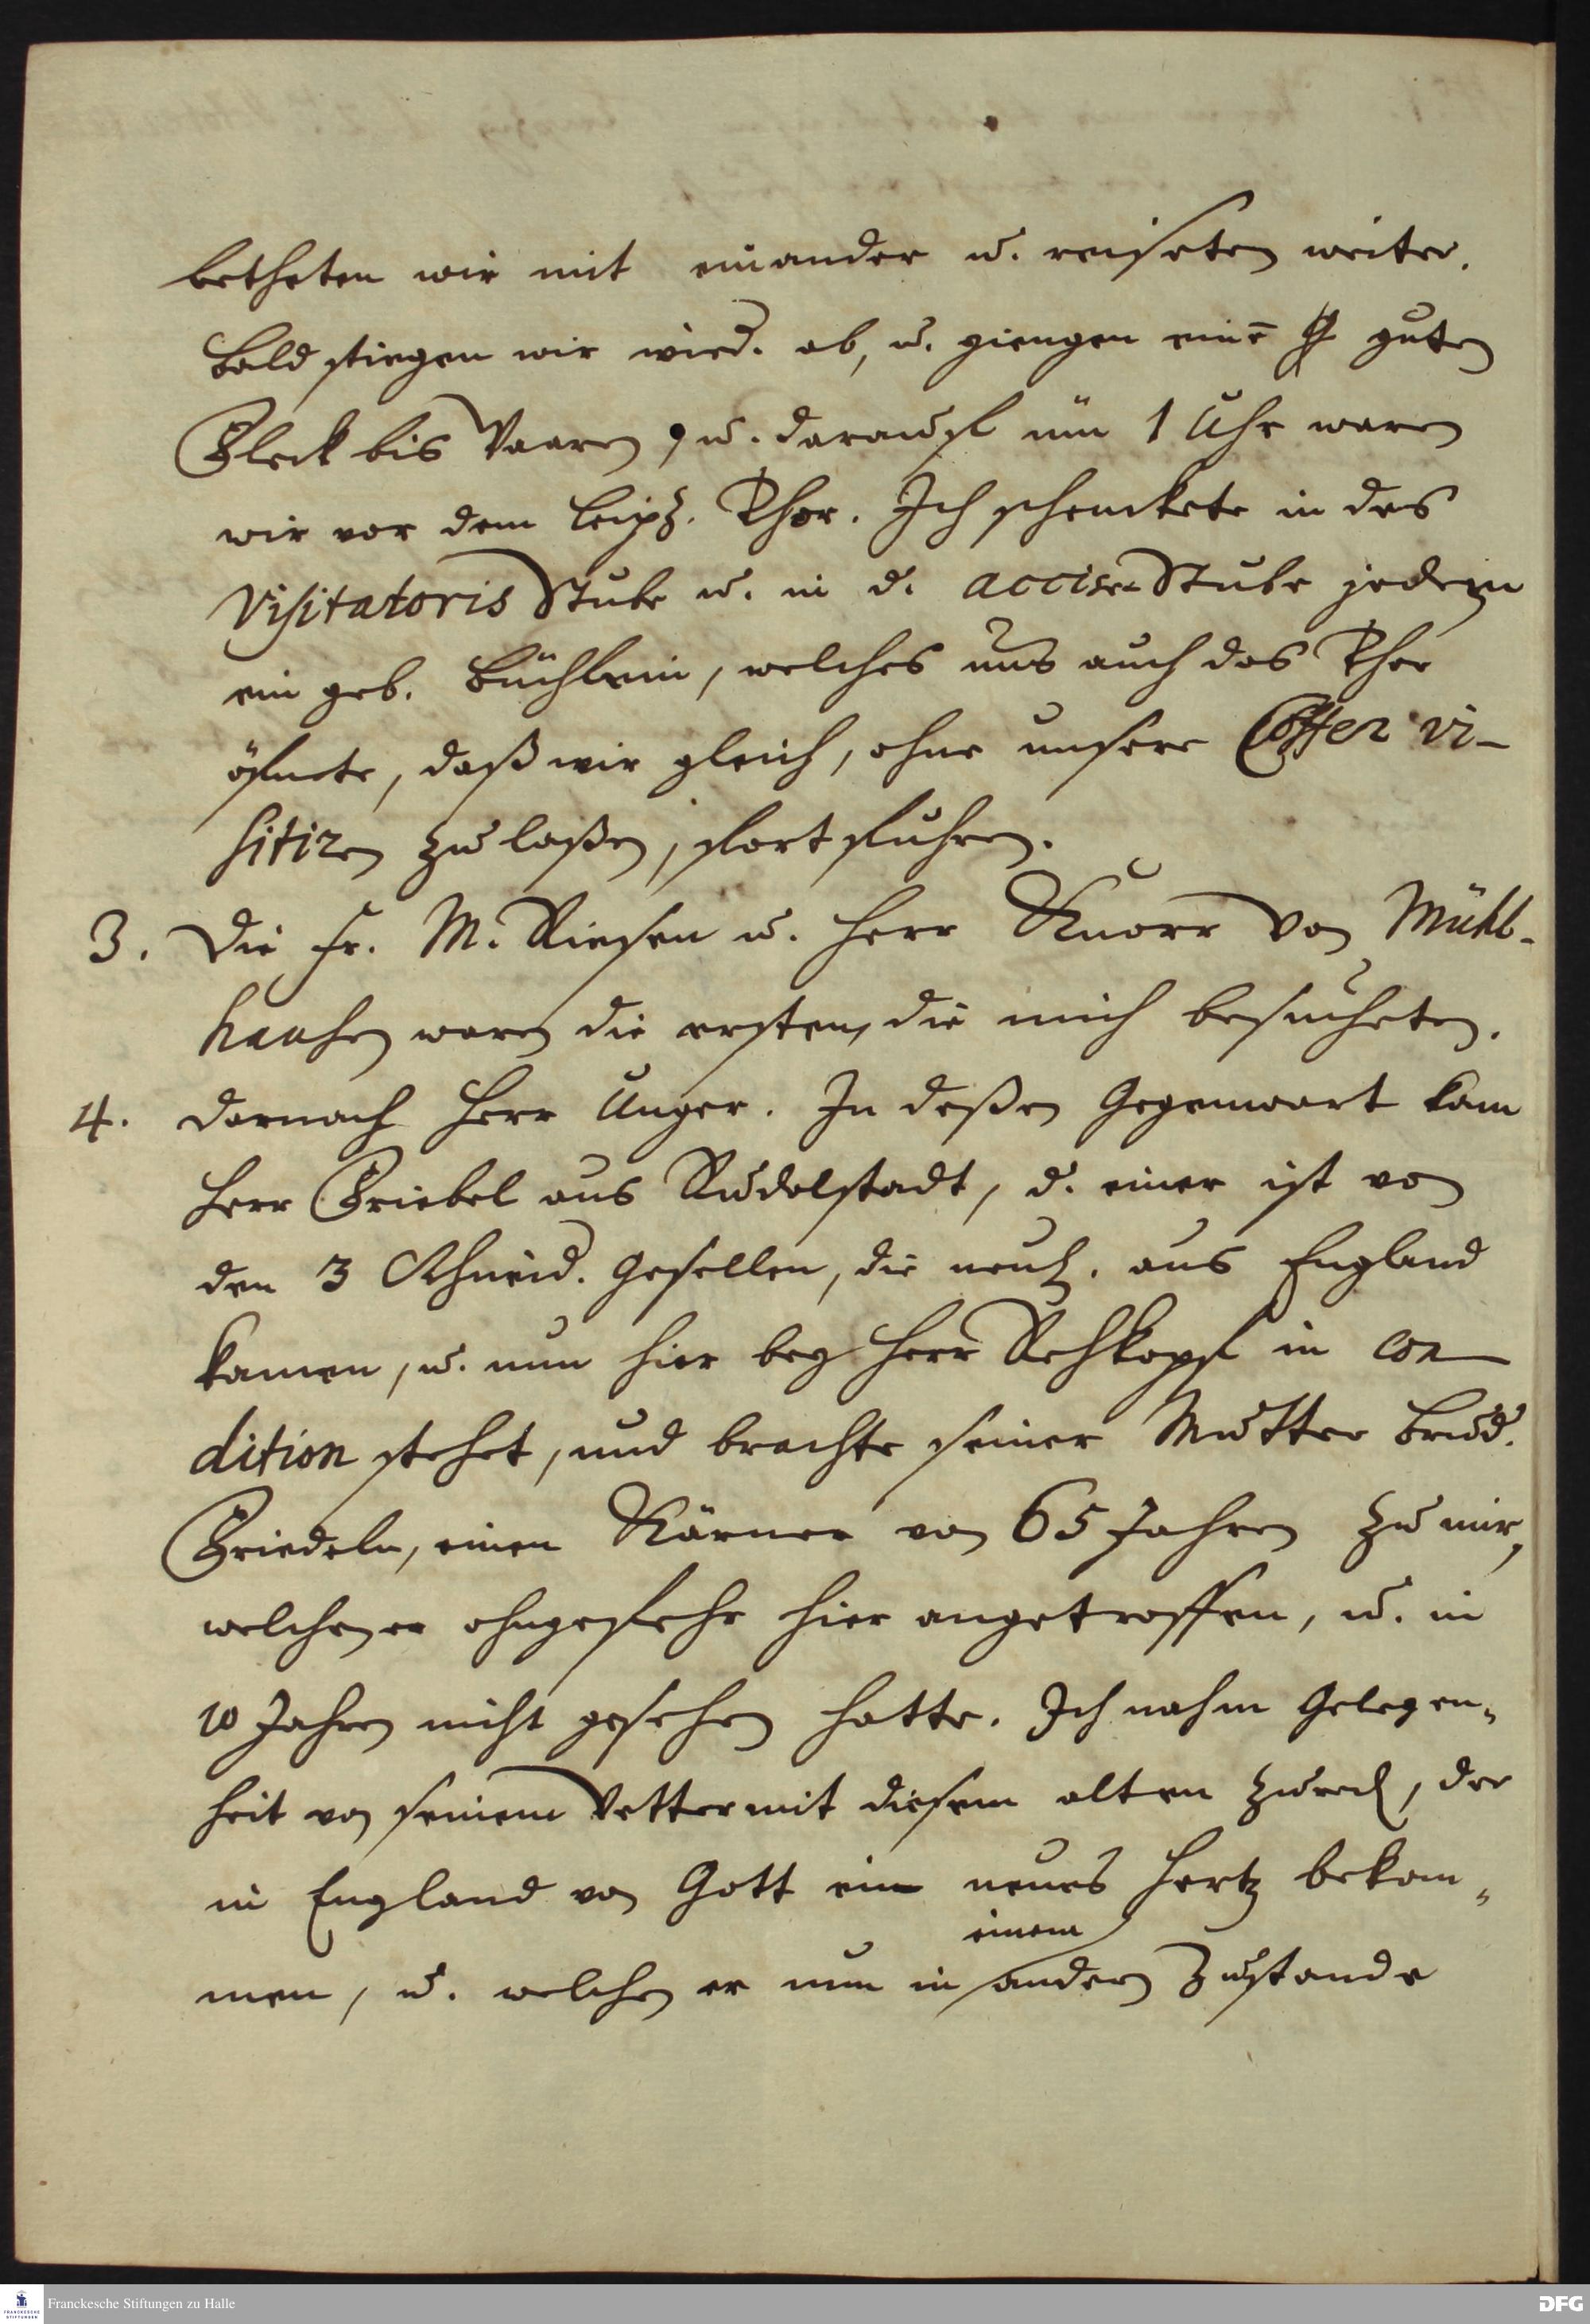 betheten wir mit einander u. reiseten weiter.
Bald stiegen wir wied. ab, u. giengen eine guten
Fleck bis Vaaren, u. darauf um 1 Uhr waren
wir vor dem Leipz. Thor. Ich schenckete in des
Visitatoris Stube u. in d. accise-Stube jedem
ein geb. Büchlein, welches uns auch das Thor
öfnete, daß wir gleich, ohne unsere Coffer vi-
sitiren zu laßen, fort fuhren.
3. Die Fr. M. Riesen u. Herr Knorr von Mühl-
hausen waren die ersten, die mich besucheten.
4. Darnach Herr Unger. In deßen Gegenwart kam
Herr Friebel aus Rudolstadt, d. einer ist von
den 3 Schneid. Gesellen, die neul. aus England
kamen, u. nun hier bey Herr Rehkopf in con-
dition stehet, und brachte seiner Mutter Brud.
Friedeln, einen Kärner von 65 Jahren zu mir,
welchen er ohngefehr hier angetroffen, u. in
10 Jahren nicht gesehen hatte. Ich nahm Gelegen-
heit von seinem Vetter mit diesem alten zu red., der
in England von Gott ein neues Hertz bekom-
men, u. welchen er nun in einem andern Zustande
Franckesche Stiftungen zu Halle
DFG